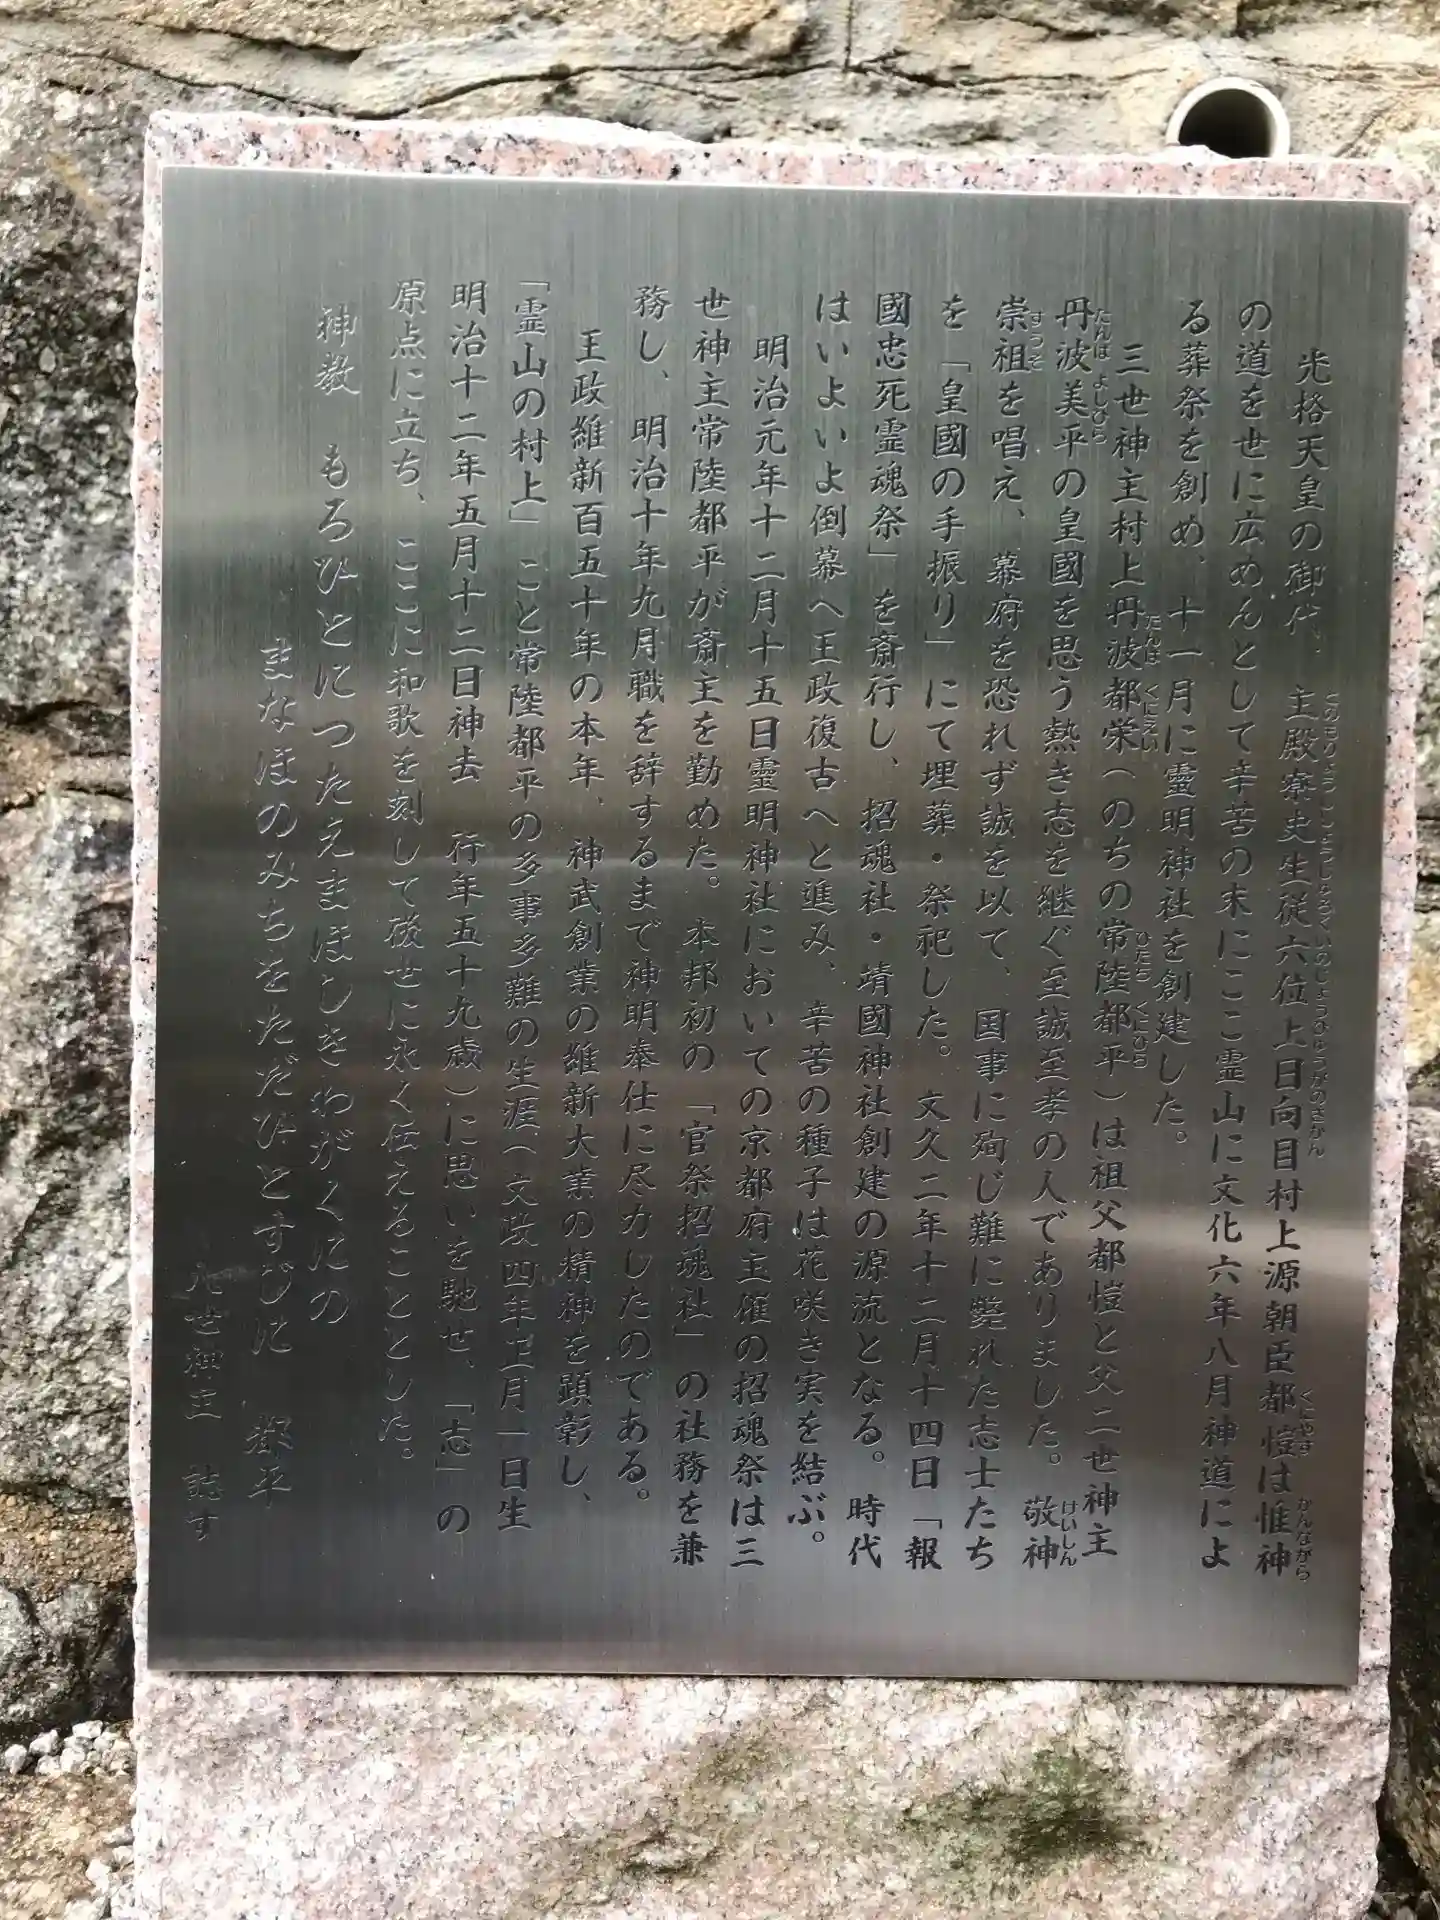 光格天皇の御代、主殿寮史生従六位上日向目村上源朝臣都愷は惟神
の道を世に広めんとして辛苦の末にここ霊山に文化六年八月神道によ
る葬祭を創め、十一月に靈明神社を創建した。
三世神主村上丹波都栄（のちの常陸都平）は祖父都愷と父二世神主
丹波美平の皇國を思う熱き志を継ぐ至誠至孝の人でありました。敬神
崇祖を唱え、幕府を恐れず誠を以て、国事に殉じ難に斃れた志士たち
を「皇國の手振り」にて埋葬・祭祀した。文久二年十二月十四日「報
國忠死霊魂祭」を斎行し、招魂社・靖國神社創建の源流となる。時代
はいよいよ倒幕へ王政復古へと進み、辛苦の種子は花咲き実を結ぶ。
明治元年十二月十五日靈明神社においての京都府主催の招魂祭は三
世神主常陸都平が斎主を勤めた。本邦初の「官祭招魂社」の社務を兼
務し、明治十年九月職を辞するまで神明奉仕に尽力したのである。
王政維新百五十年の本年、神武創業の維新大業の精神を顕彰し、
「霊山の村上」こと常陸都平の多事多難の生涯（文政四年正月一日生
明治十二年五月十二日神去　行年五十九歳）に思いを馳せ、「志」の
原点に立ち、ここに和歌を刻して後世に永く伝えることとした。
神教　もろひとにつたえまほしきわがくにの
まなほのみちをただひとすじに　都平
八世神主　誌す